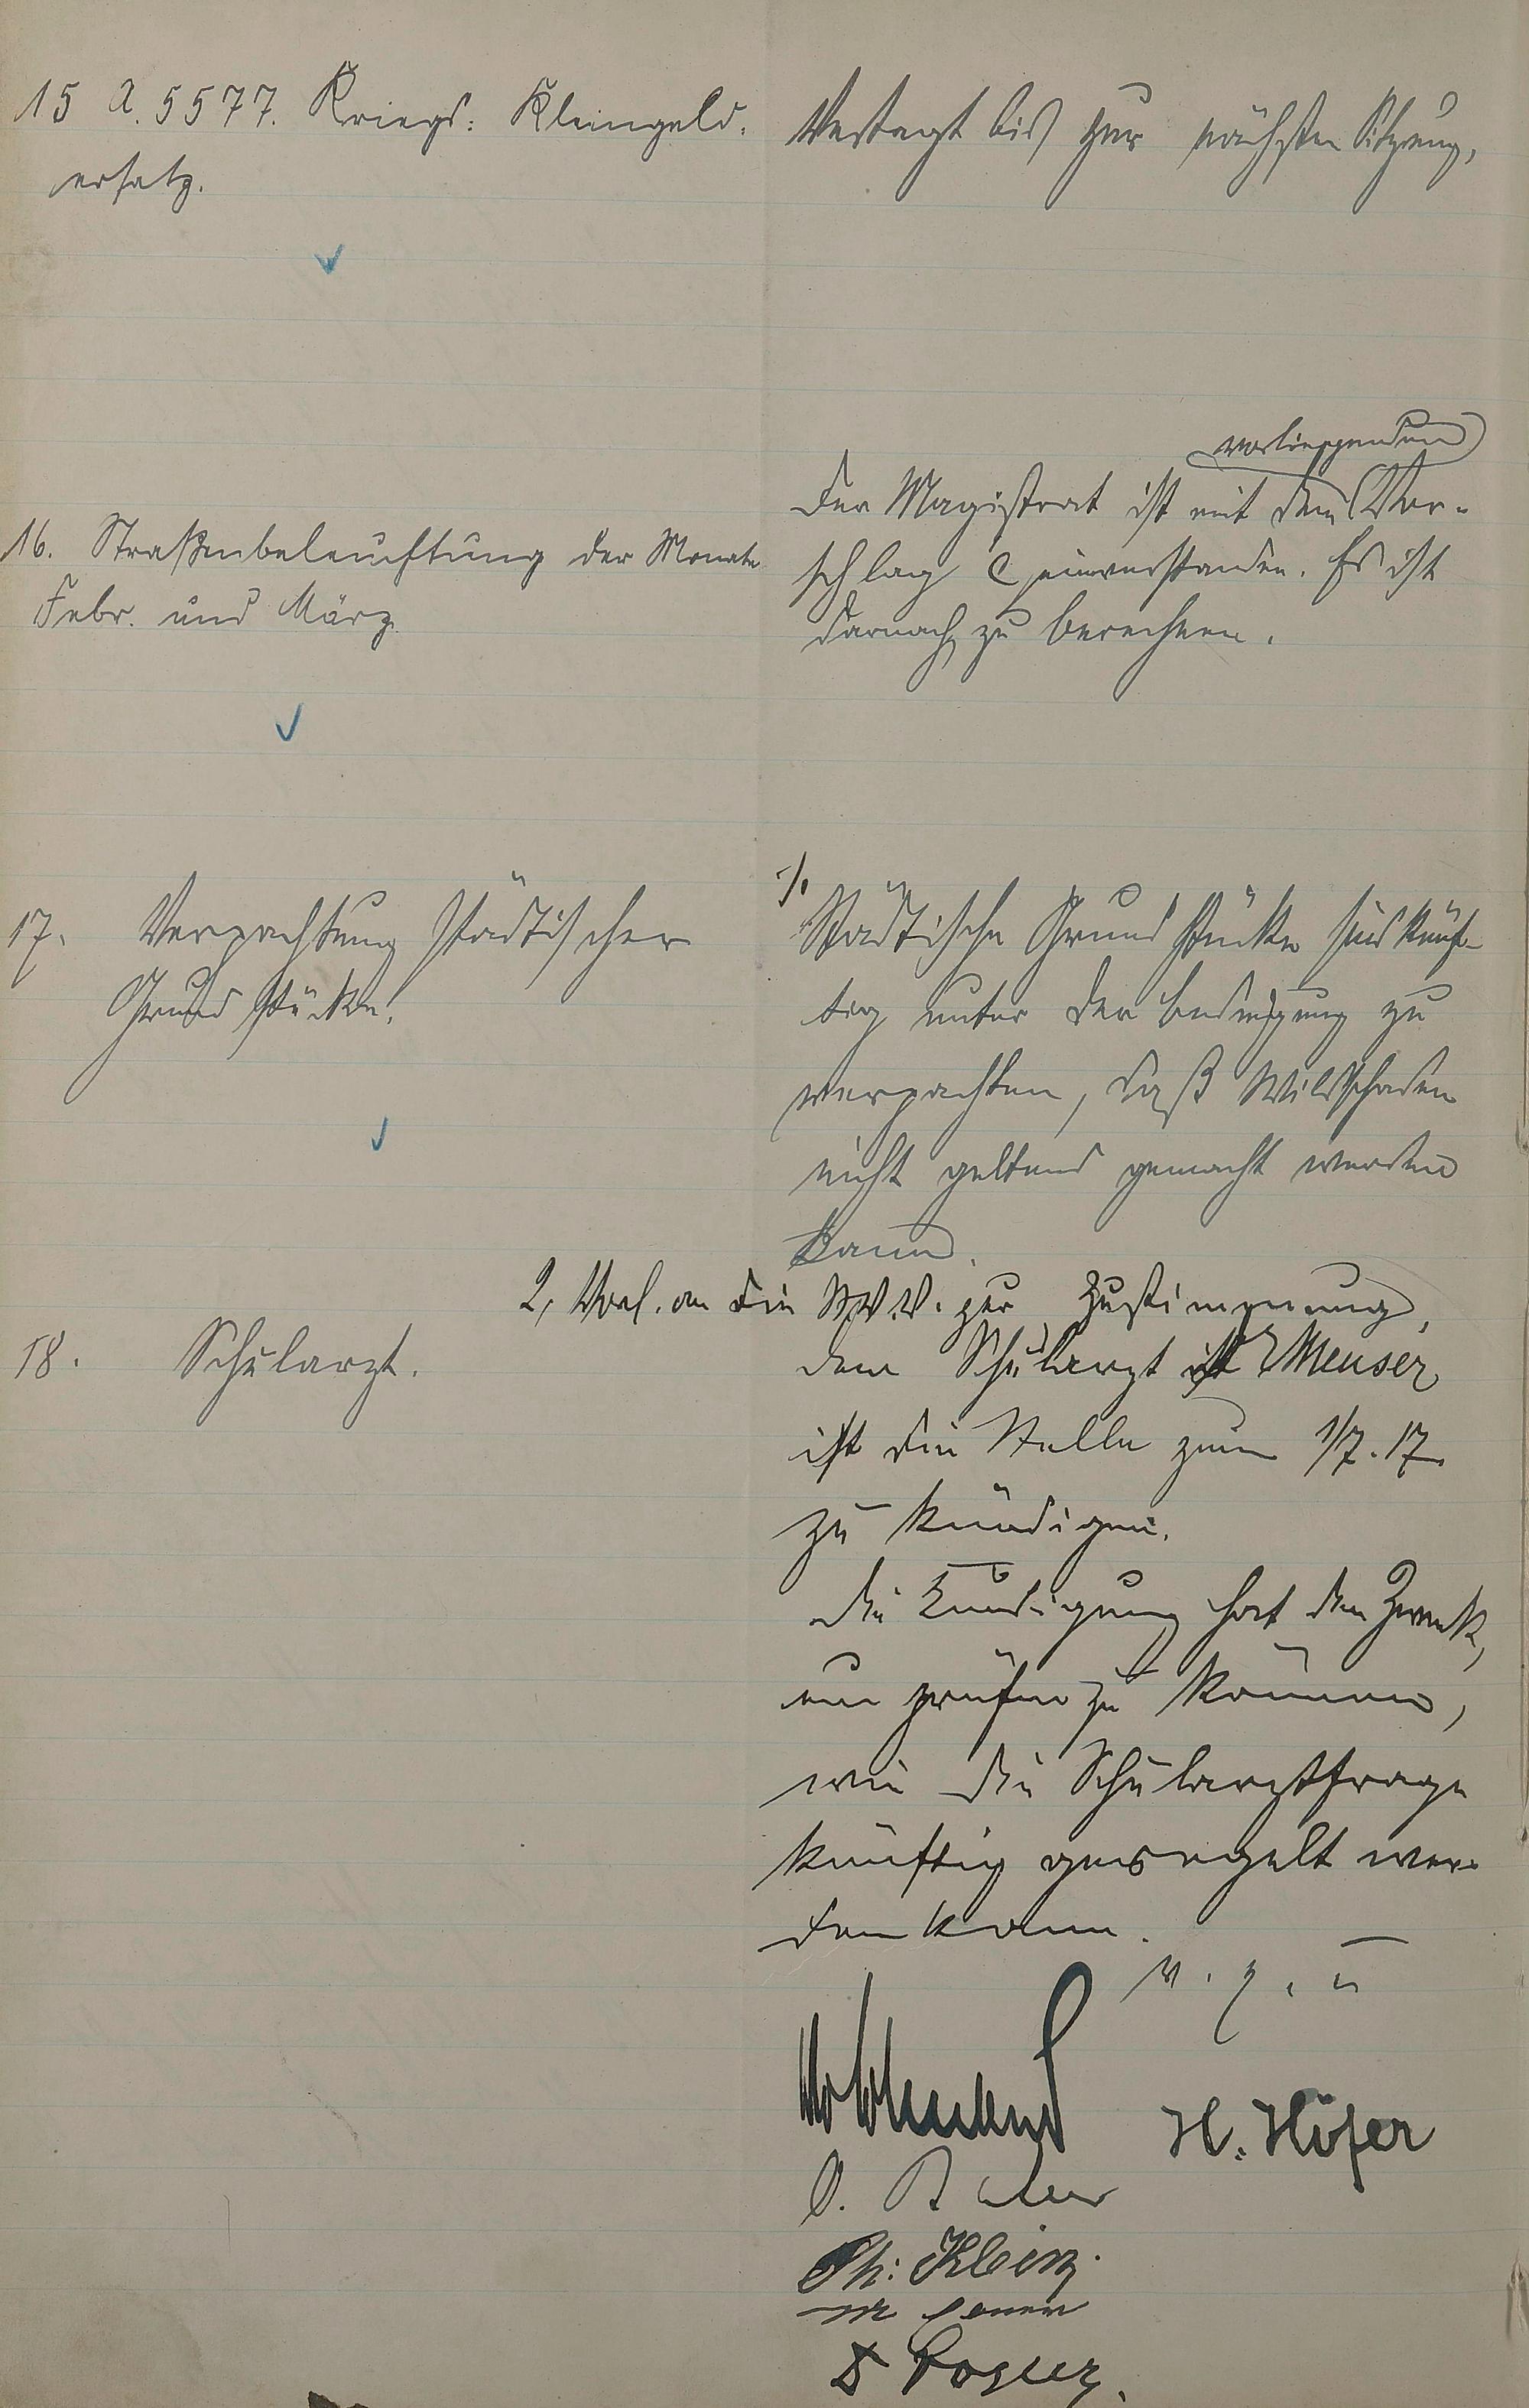 15 A. 5577. Kriegs: Kleingeld-
ersatz.
Vertagt bis zur nächsten Sitzung,
16. Straßenbeleuchtung der Monate
Febr. und März.
vorliegenden
Der Magistrat ist mit dem Vor-
schlag C einverstanden. Es ist
darnach zu berechnen.
17. Verpachtung städtischer
Grundstücke.
1/. Städtische Grundstücke sind künf-
tig unter der Bedingung zu
verpachten, daß Wildschaden
nicht geltend gemacht werden
kann.
2, Vorl. an die St.V.V. zur Zustimmung,
18. Schularzt.
dem Schularzt Meuser
ist die Stelle zum 1/7.17.
zu kündigen.
Die Kündigung hat den Zweck,
um prüfen zu können,
wie die Schularztfrage
künftig geregelt wer-
den kann.
v. g. u
H. Höfer
Ph: Klein